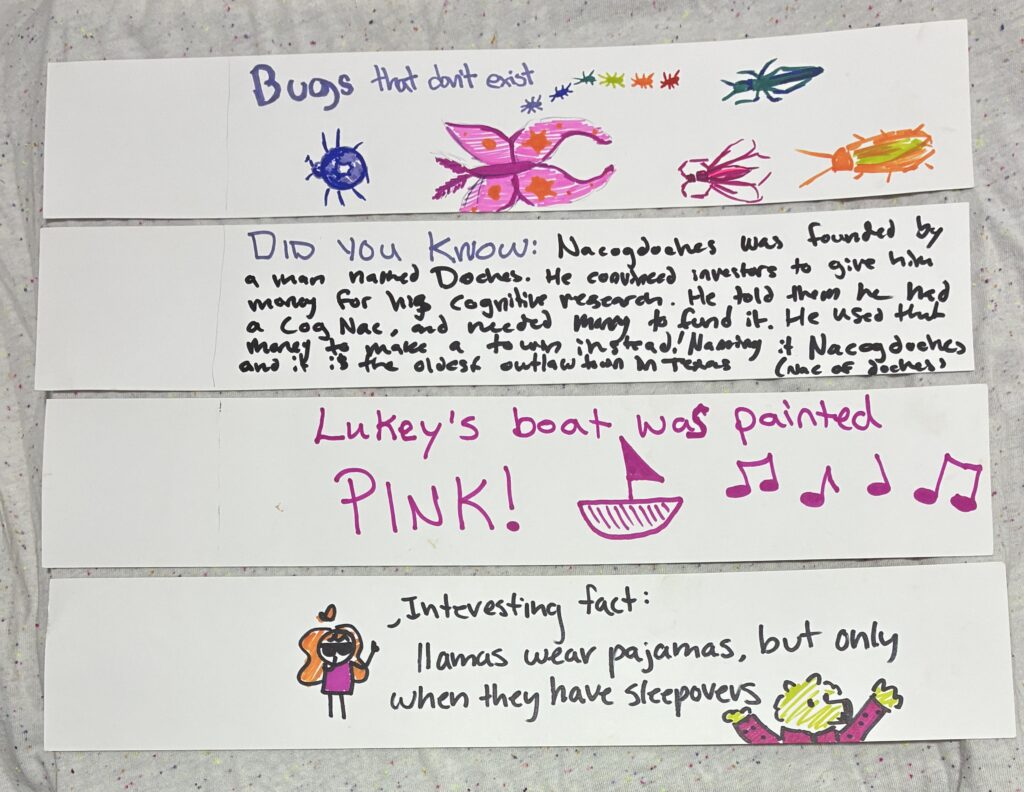 Bugs that don't exist
DID YOU KNOW: Nacogdoches was founded by
a man named Doches. He convinced investors to give him
money for his cognitive research. He told them he had
a Cog Nac, and needed money to fund it. He used that
money to make a town instead! Naming it Nacogdoches
and it is the oldest outlaw town in Texas (Nac of doches)
Lukey's boat was painted
PINK!
Interesting fact:
llamas wear pajamas, but only
when they have sleepovers